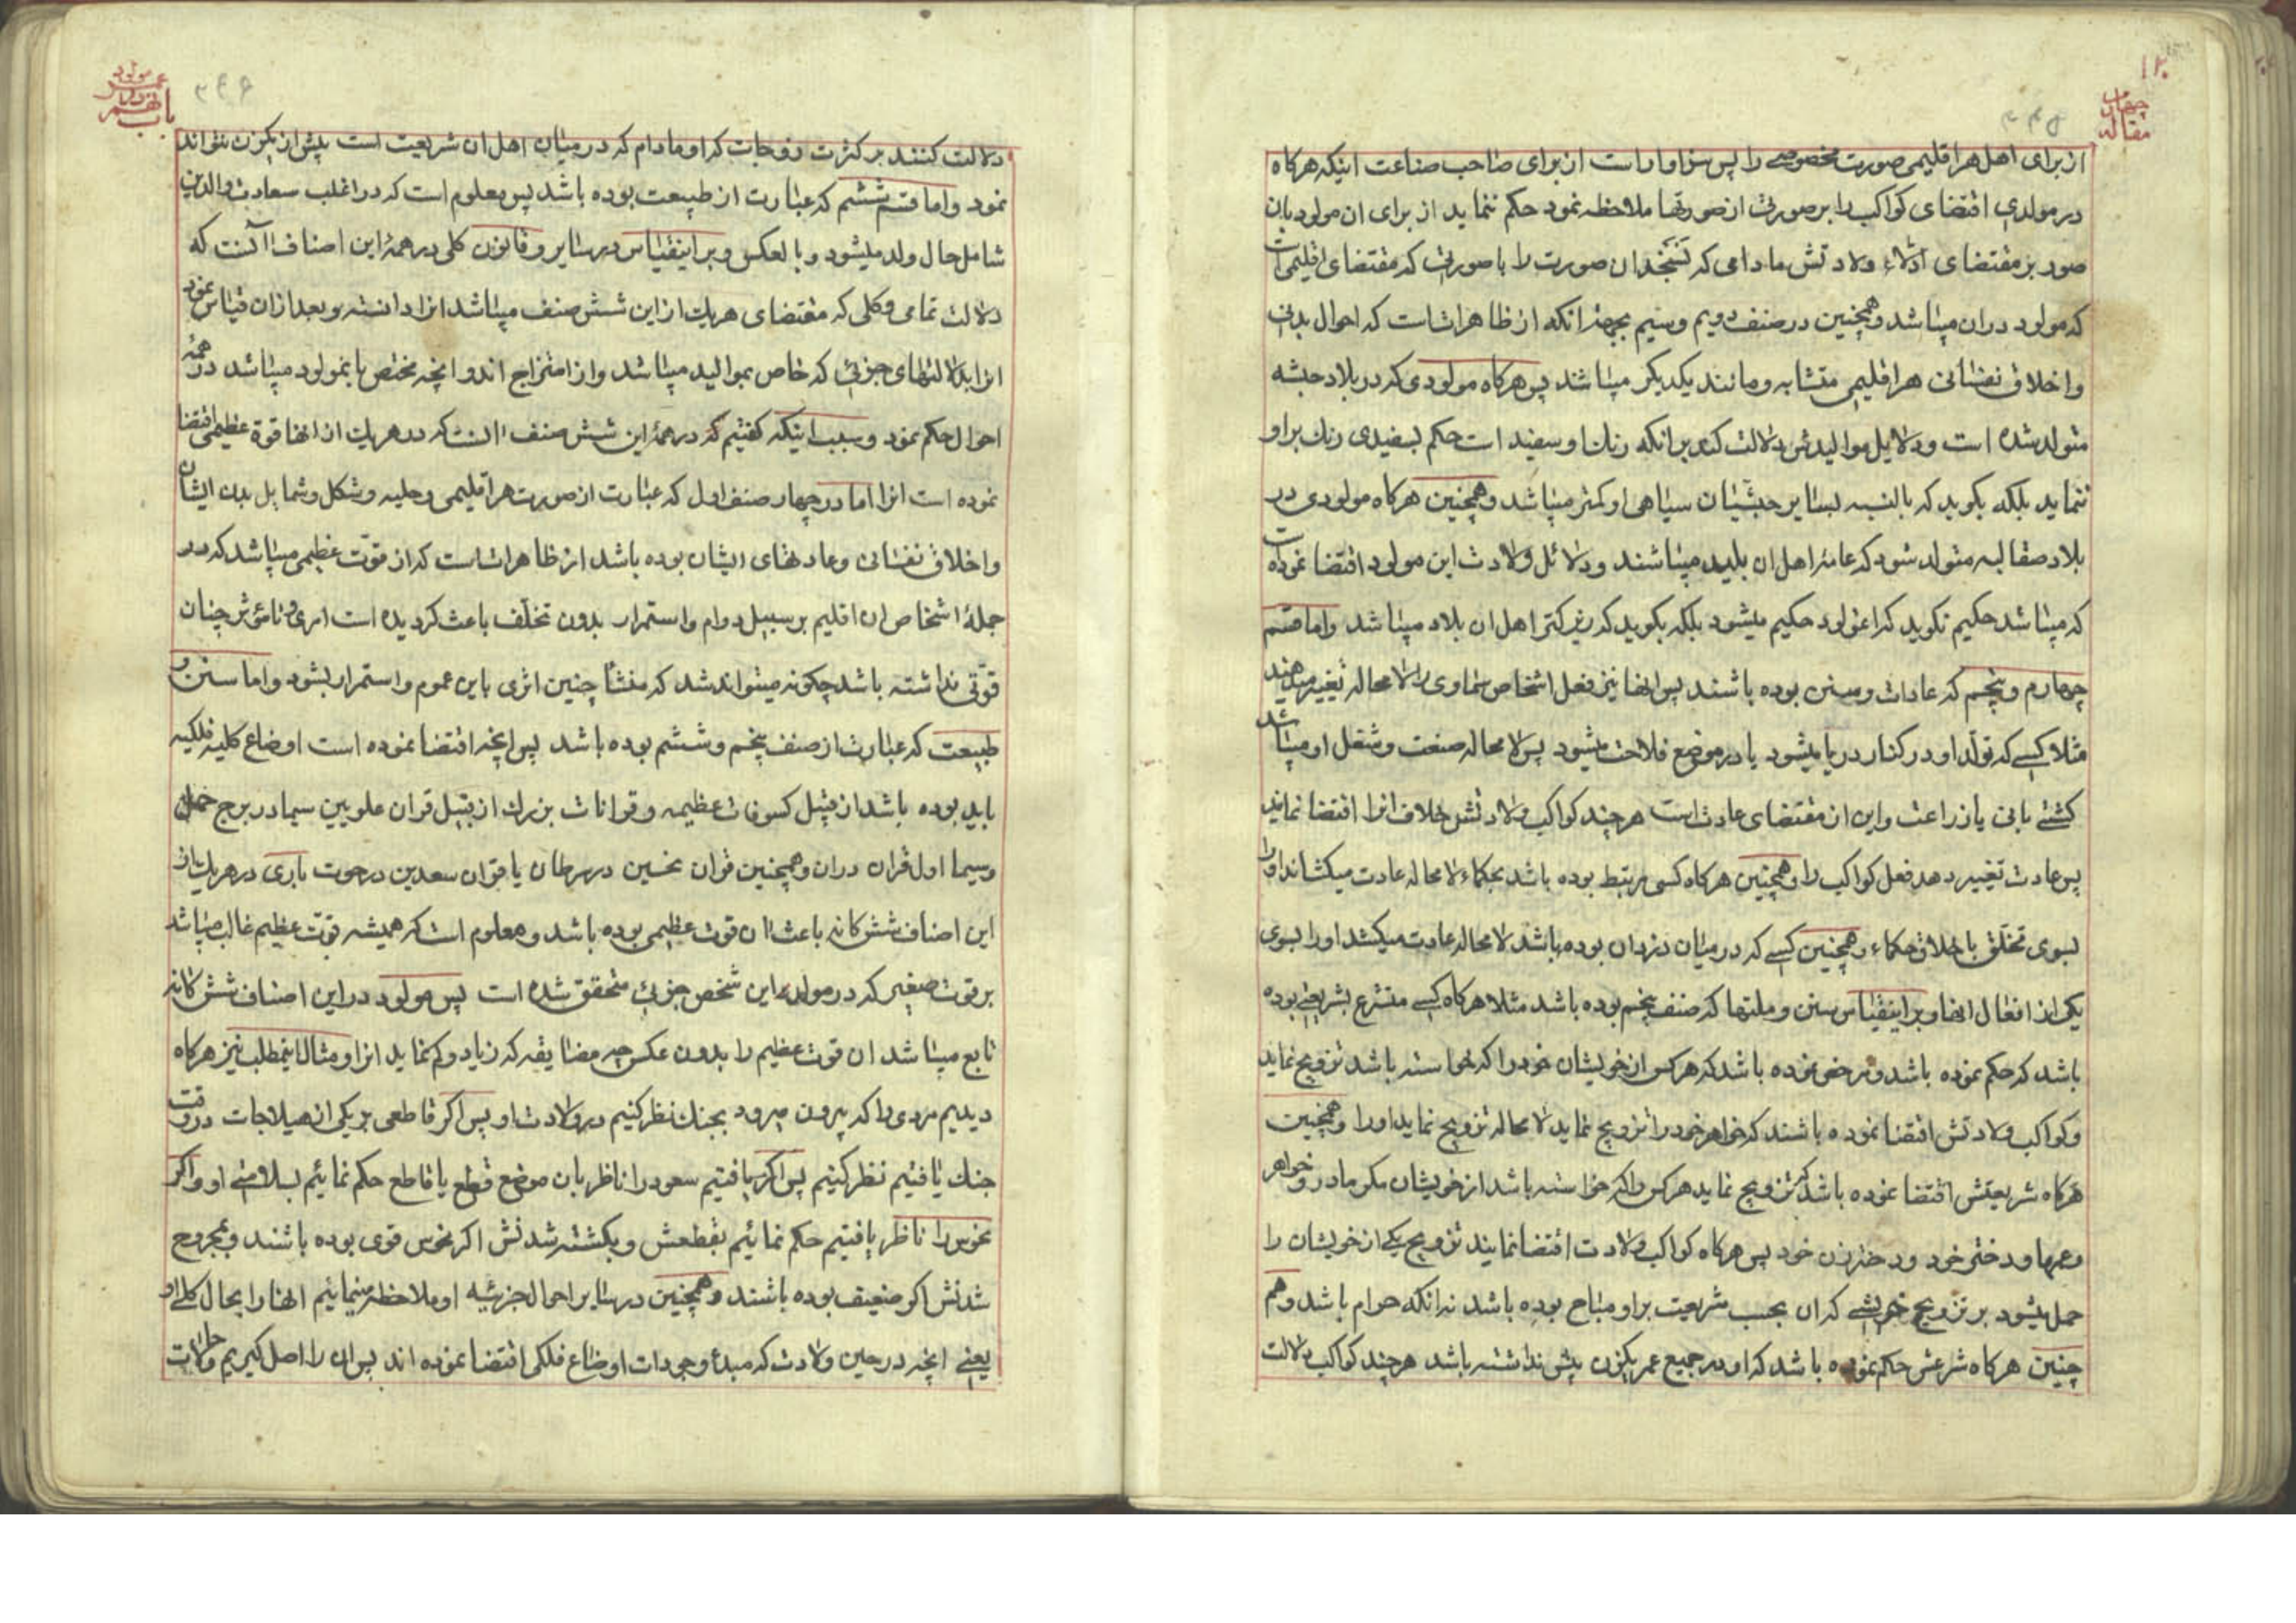 ۱۲۰
مقاله چهارم
۲۴۵
از برای اهل هر اقلیمی صورت مخصوصی را پس سزاوار است از برای صاحب صناعت اینکه هرکاه
در مولدی اقتضای کواکب را بر صورتی از صورتها ملاحظه نمود حکم ننماید از برای ان مولود بان
صورت بر مقتضای ادلاء ولادتش مادامی که نسنجد ان صورت را با صورتی که مقتضای اقلیمی است
که مولود در ان میباشد وهمچنین در صنف دویم وسیم بجهة انکه از ظاهرات است که احوال بدنی
واخلاق نفسانی هر اقلیمی متشابه ومانند یکدیکر میباشد پس هرکاه مولودی که در بلاد حبشه
متولد شده است ودلایل موالیدش دلالت کند بر انکه رنك او سفید است حکم بسفیدی رنك بر او
ننماید بلکه بکوید که بالنسبه بسایر حبشیان سیاهی او کمتر میباشد وهمچنین هرکاه مولودی در
بلاد صقالبه متولد شود که عامهٔ اهل ان بلید میباشند ودلائل ولادت این مولود اقتضا نموده است
که میباشد حکیم نکوید که انمولود حکیم میشود بلکه بکوید که زیرکتر اهل ان بلاد میباشد واما قسم
چهارم وپنجم که عادات وسنن بوده باشند پس انها نیز فعل اشخاص سماوی را لا محاله تغییر میدهند
مثلا کسی که تولد او در کنار دریا میشود یا در موضع فلاحت میشود پس لا محاله صنعت وشغل او میباشد
کشتی بانی یا زراعت واین از مقتضای عادت است هرچند کواکب ولادتش خلاف انرا اقتضا نماید
پس عادت تغییر دهد فعل کواکب را وهمچنین هرکاه کسی مرتبط بوده باشد بحکماء لا محاله عادت میکشاند او را
بسوی تخلق باخلاق حکماء وهمچنین کسی که در میان دزدان بوده باشد لا محاله عادت میکشد او را بسوی
یکی از افعال انها وبر اینقیاس سنن وملتها که صنف پنجم بوده باشد مثلا هرکاه کسی متشرع بشریعتی بوده
باشد که حکم نموده باشد ومرخص نموده باشد که هر کس از خویشان خود را که خواسته باشد تزویج نماید
وکواکب ولادتش اقتضا نموده باشند که خواهر خود را تزویج نماید لا محاله تزویج نماید او را وهمچنین
هرکاه شریعتش اقتضا نموده باشد که تزویج نماید هر کس را که خواسته باشد از خویشان مکر مادر وخواهر
وعمها ودختر خود ودختر زن خود پس هرکاه کواکب ولادت اقتضا نمایند تزویج یکی از خویشان را
حمل میشود بر تزویج خویشی که ان بحسب شریعت بر او مباح بوده باشد نه انکه حرام باشد وهم
چنین هرکاه شرعش حکم نموده باشد که او در جمیع عمر یکزن بیش نداشته باشد هرچند کواکب دلالت
۲۴۶
باب نهم
دلالت کنند بر کثرت زوجات که او مادام که در میان اهل ان شریعت است بیش از یکزن نتواند
نمود واما قسم ششم که عبارت از طبیعت بوده باشد پس معلوم است که در اغلب سعادت والدین
شامل حال ولد میشود وبالعکس وبر اینقیاس در سایر وقانون کلی در همهٔ این اصناف انست که
دلالت تمامی وکلی که مقتضای هریك از این شش صنف میباشد انرا دانسته وبعد از ان قیاس نمود
انرا بدلالتهای جزئی که خاص بموالید میباشد واز امتزاج اندو انچه مختص بانمولود میباشد در همهٔ
احوال حکم نمود وسبب اینکه کفتیم که در همهٔ این شش صنف انست که در هریك از انها قوة عظیمی اقتضا
نموده است انرا اما در چهار صنف اول که عبارت از صورت هر اقلیمی وحلیه وشکل وشمایل بدن ایشان
واخلاق نفسانی وعادتهای ایشان بوده باشد از ظاهرات است که از قوت عظیمی میباشد که در
جملهٔ اشخاص ان اقلیم بر سبیل دوام واستمرار بدون تخلف باعث کردیده است امری وتا مؤثر چنان
قوتی نداشته باشد چکونه میتواند شد که منشأ چنین اثری باین عموم واستمرار بشود واما سنن و
طبیعت که عبارت از صنف پنجم وششم بوده باشد پس انچه اقتضا نموده است اوضاع کلیهٔ فلکیه
باید بوده باشد از قبیل کسوفات عظیمه وقرانات بزرك از قبیل قران علویین سیما در برج حمل
وسیما اول قران در ان وهمچنین قران نحسین در سرطان یا قران سعدین در حوت باری در هریك از
این اصناف شش کانه باعث ان قوت عظیمی بوده باشد ومعلوم است که همیشه قوت عظیم غالب میباشد
بر قوت صغیر که در مولد این شخص جزئی متحقق شده است پس مولود در این اصناف شش کانه
تابع میباشد ان قوت عظیم را بدون عکس چه مضایقه که زیاد وکم نماید انرا ومثال اینمطلب نیز هرکاه
دیدیم مردی را که بیرون میرود بجنك نظر کنیم در ولادت او پس اکر قاطعی بر یکی از هیلاجات در وقت
جنك یافتیم نظر کنیم پس اکر یافتیم سعود را ناظر بان موضع قطع یا قاطع حکم نمائیم بسلامتی او واکر
نحوس را ناظر یافتیم حکم نمائیم بقطعش وبکشته شدنش اکر نحوس قوی بوده باشند وبمجروح
شدنش اکر ضعیف بوده باشند وهمچنین در سایر احوال جزئیه او ملاحظه مینمائیم انها را بحال کلی او
یعنی انچه در حین ولادت که مبدء وجود است اوضاع فلکی اقتضا نموده اند پس ان را اصل کیریم وحالات